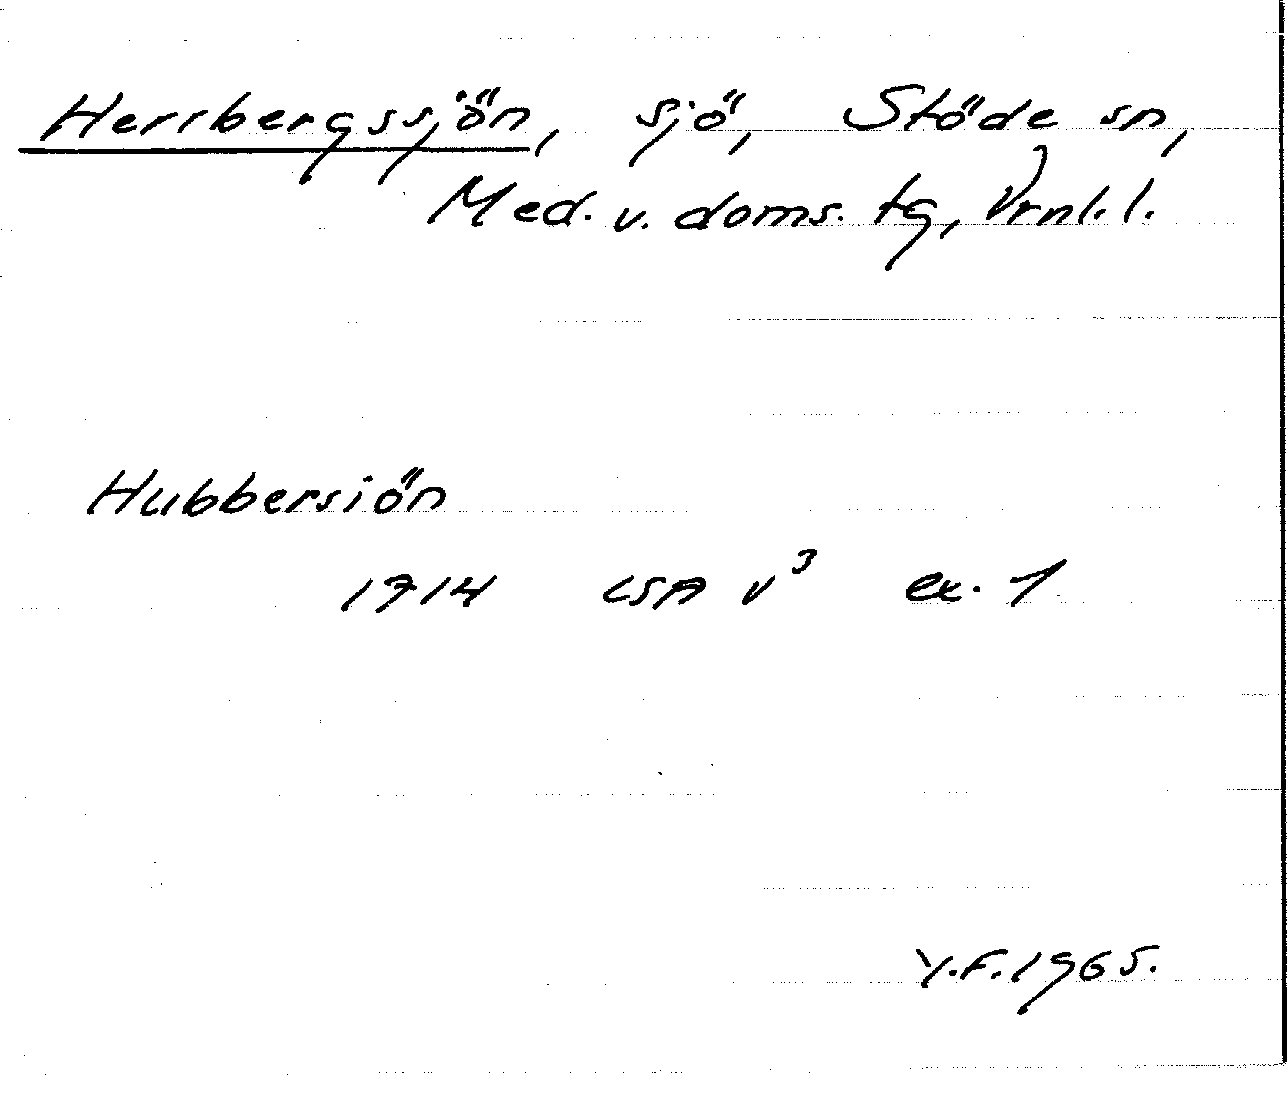 Herrbergssjön, sjö, Stöde sn,
Med. v. doms. tg, Vrnl. l.
Hubbersiön
1714 LSA v³ ex. 1
Y.F. 1965.